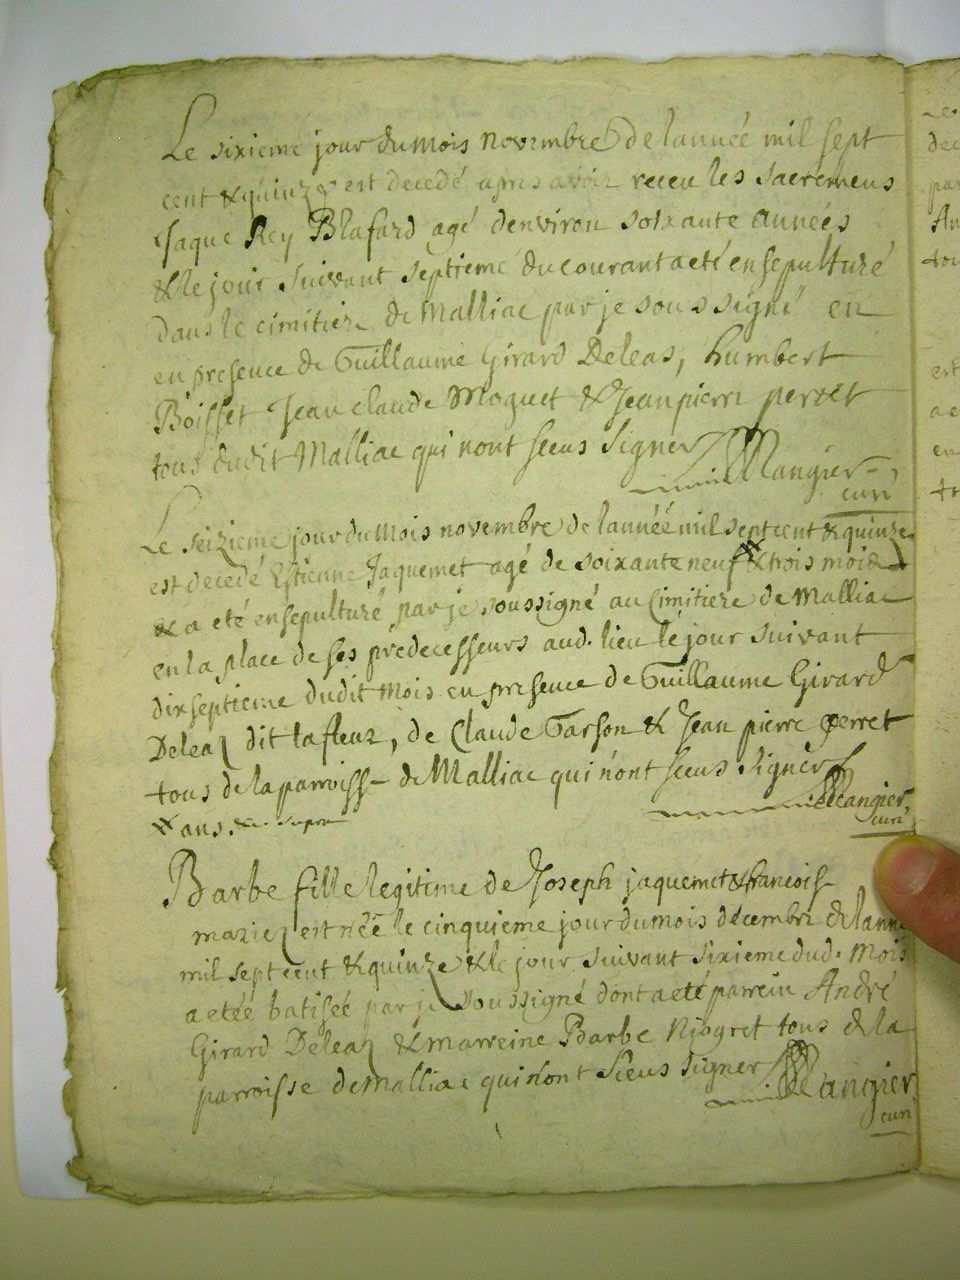 Le sixieme jour du mois novembre de lannéé mil sept
cent & quinze est decedé apres avoir receu les sacremens
Jaque Rey Blafard agé denviron soixante années
& le jour suivant septieme du courant a eté ensepulturé
dans le cimitiere de Malliac par je soussigné en
en presence de Guillaume Girard Deleas, humbert
Boisset Jean claude Moguet & Jean pierre perret
tous dudit Malliac qui nont sceus signer Mangier
curé
Le seizieme jour du Mois novembre de lannéé mil sept cent & quinze
est decedé Estienne Jaquemet agé de soixante neuf & trois mois
& a eté ensepulturé par je soussigné au Cimitiere de Malliac
en la place de ses prédecesseurs aud. lieu le jour suivant
dixseptieme dudit Mois en presence de Guillaume Girard
Deleaz dit lafleur, de Claude Garson & Jean pierre perret
tous de la parroisse de Malliac qui n'ont sceus signer Mangier
curé
ans.
Barbe fille legitime de Joseph jaquemet & francoise
mariez est néé le cinquieme jour du mois décembre de lanné
mil sept cent & quinze & le jour suivant sixieme dud. Mois
a etéé batiséé par je soussigné dont a eté parrein André
Girard Deleaz & marreine Barbe Niogret tous de la
parroisse de Malliac qui n'ont sceus signer Mangier
curé
Le
dec
par
An
tou
est
a e
en